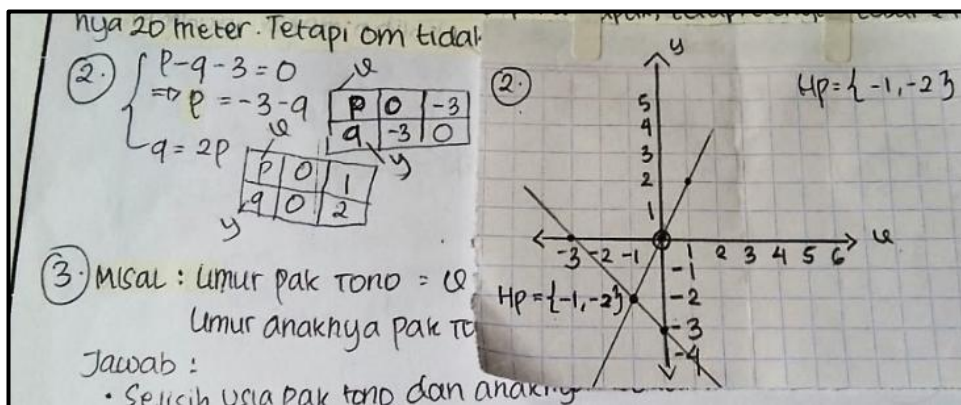 nya 20 meter. Tetapi om tidak
2. p-q-3=0
=> p = -3-q
q = 2p
x
p 0 -3
q -3 0
y
x
p 0 1
q 0 2
y
3. Misal : Umur pak Tono = x
Umur anaknya pak To
Jawab :
• Selisih usia pak tono dan anakny
2.
Hp = {-1, -2}
y
5
4
3
2
1
-3 -2 -1 1 2 3 4 5 6 x
-1
Hp = {-1, -2} -2
-3
-4